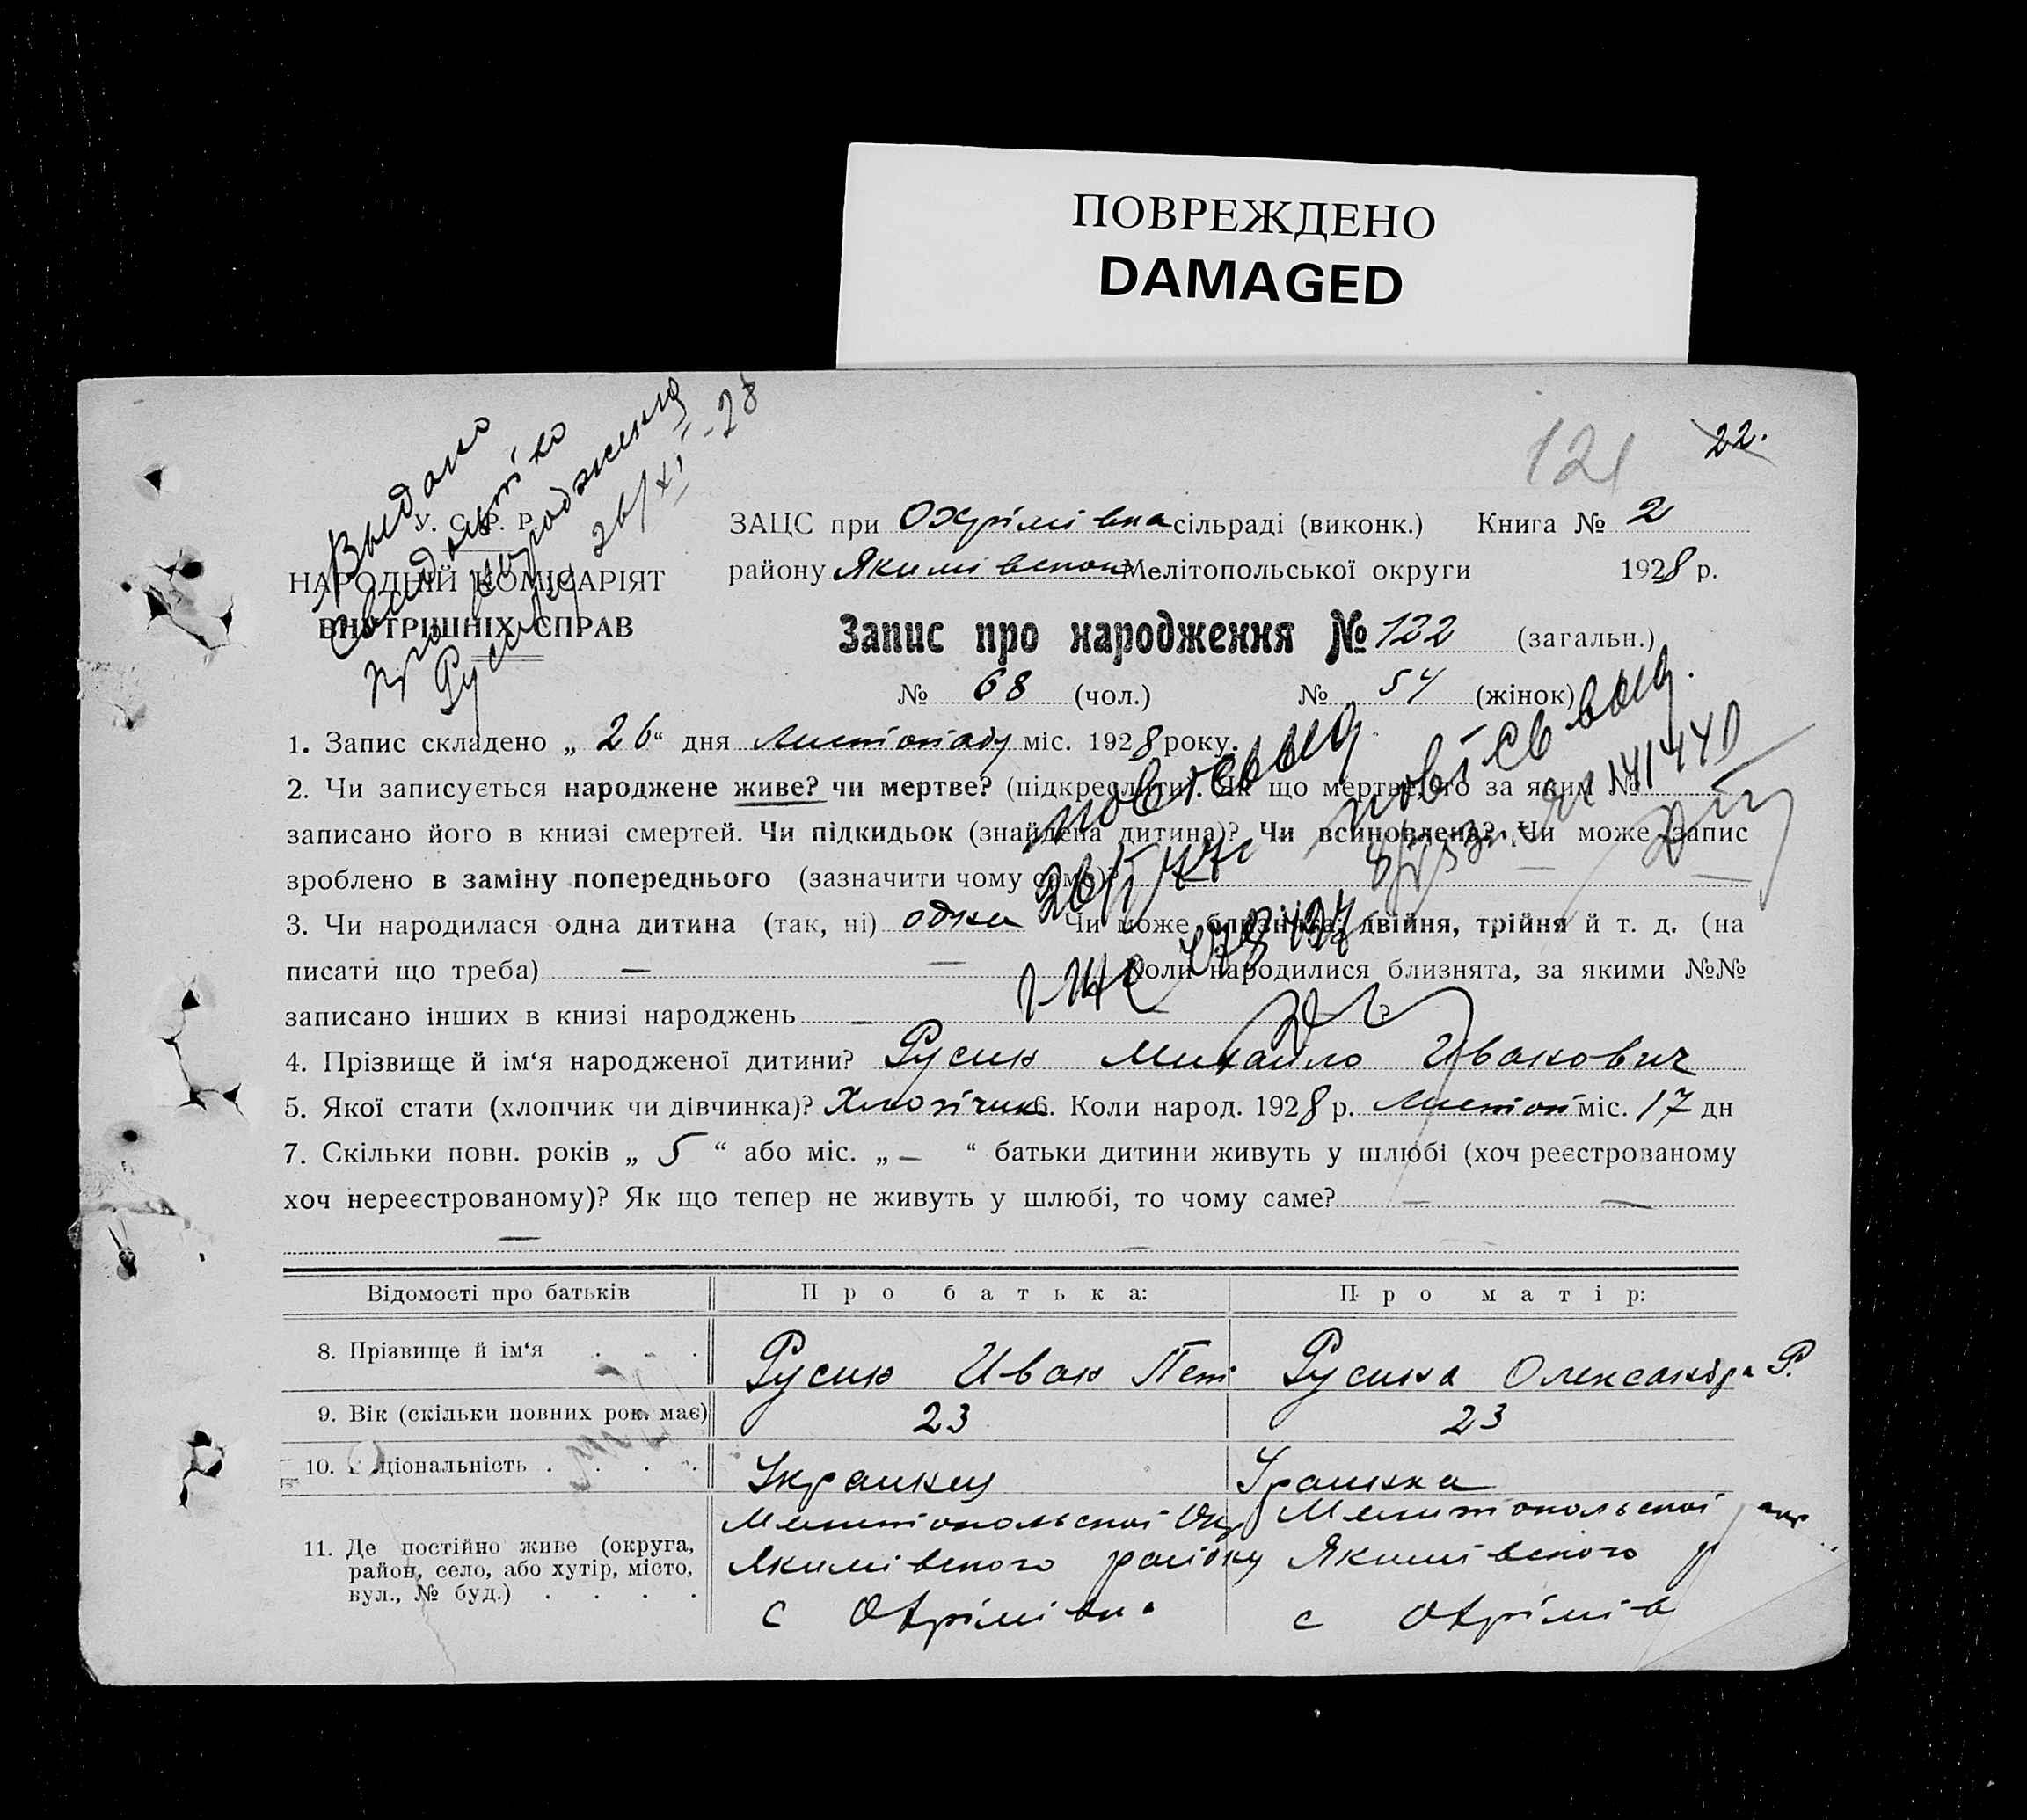 ПОВРЕЖДЕНО
DAMAGED
121 22.
Выдано
свидоцтво
про народження
Русину 26/XI-28
У. С. Р. Р.
НАРОДНІЙ КОМІСАРІЯТ
ВНУТРІШНІХ СПРАВ
ЗАЦС при Охрімівка сільраді (виконк.) Книга № 2
району Якимівском Мелітопольської округи 1928 р.
Запис про народження № 122 (загальн.)
№ 68 (чол.) № 54 (жінок)
1. Запис складено „ 26 “ дня листопаду міс. 1928 року.
2. Чи записується народжене живе? чи мертве? (підкреслити). Як що мертве, то за яким №
записано його в книзі смертей. Чи підкидьок (знайдена дитина)? Чи всиновлена? Чи може запис
зроблено в заміну попереднього (зазначити чому саме)? —
3. Чи народилася одна дитина (так, ні) одна Чи може близнята, двійня, трійня й т. д. (на
писати що треба) — — Коли народилися близнята, за якими №№
записано інших в книзі народжень —
повт. св. выд.
141440
4. Прізвище й ім‘я народженої дитини? Русин Михайло Иванович
5. Якої стати (хлопчик чи дівчинка)? Хлопчик 6. Коли народ. 1928 р. листоп міс. 17 дн
7. Скільки повн. років „ 5 “ або міс. „ — “ батьки дитини живуть у шлюбі (хоч реєстрованому
хоч нереєстрованому)? Як що тепер не живуть у шлюбі, то чому саме? — —
Відомості про батьків Про батька: Про матір:
8. Прізвище й ім‘я Русин Иван Пет Русина Олександра Р.
9. Вік (скільки повних рок. має) 23 23
10. ціональність Украинец Украинка
11. Де постійно живе (округа, район, село, або хутір, місто, вул., № буд.)
Мелитопольскої Окр Мелитопольскої окр
Якимівского району Якимівского р
с Охрімівка с Охрімів